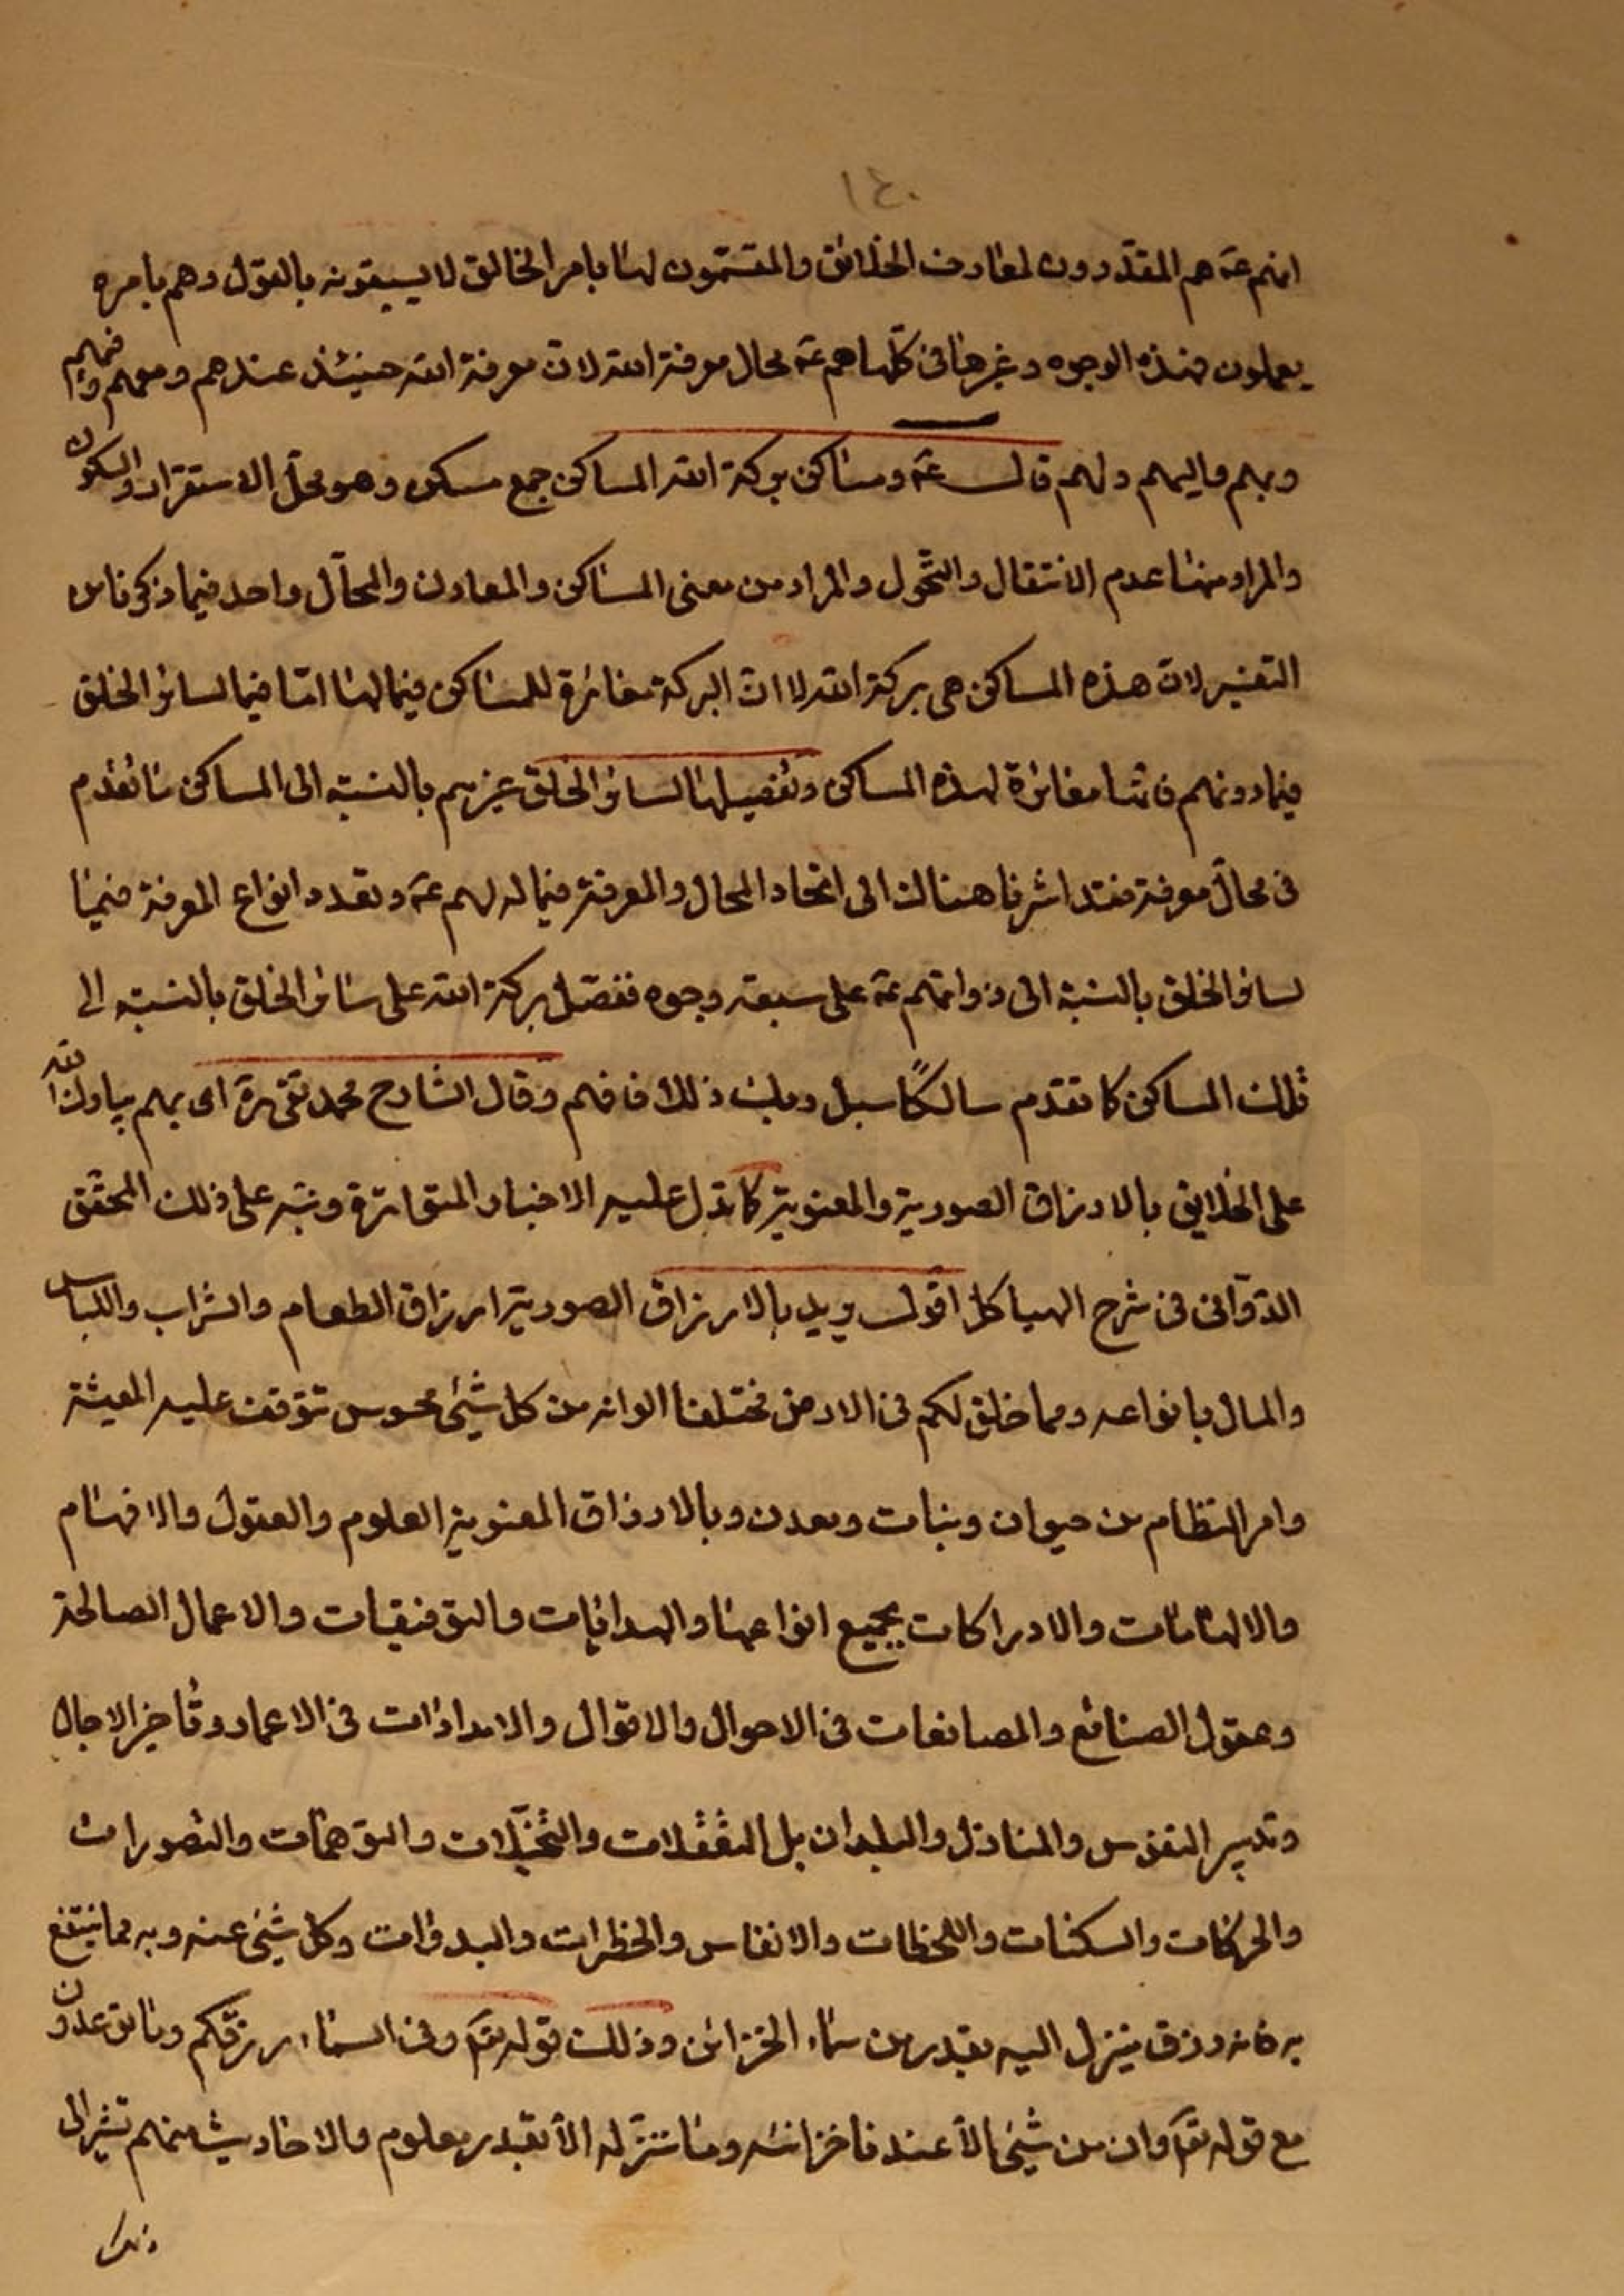 ١٤٠
انهم عم هم المقدرون لمعارف الخلائق والمقسمون لها بامر الخالق لا يسبقونه بالقول وهم بامره
يعملون فهذه الوجوه وغيرها فى كلها هم عم محال معرفة الله لان معرفة الله حينئذ عندهم ومعهم وفيهم
وبهم واليهم ولهم قال عم ومساكن بركة الله المساكن جمع مسكن وهو محل الاستقرار والسكون
والمراد منها عدم الانتقال والتحول والمراد من معنى المساكن والمعادن والمحال واحد فيما ذكرنا من
التفسير لان هذه المساكن هى بركة الله لا ان البركة مغائرة للمساكن فيما لها اما فيما لسائر الخلق
فيما دونهم فانها مغائرة لهذه المساكن وتفصيلها لسائر الخلق غيرهم بالنسبة الى المساكن ما تقدم
فى محال معرفة فقد اشرنا هنالك الى اتحاد المحال والمعرفة فيما له لهم عم وتعدد انواع المعرفة فيها
لسائر الخلق بالنسبة الى ذواتهم عم على سبعة وجوه ففصل بركة الله على سائر الخلق بالنسبة الى
تلك المساكن كما تقدم سالكًا سبل ربك ذللا فافهم وقال الشارح محمد تقى ره اى بهم يبارك الله
على الخلايق بالارزاق الصورية والمعنوية كما تدل عليه الاخبار المتواترة ونبه على ذلك المحقق
الدوانى فى شرح الهياكل اقول يريد بالارزاق الصورية ارزاق الطعام والشراب واللباس
والمال بانواعه ومما خلق لكم فى الارض مختلفا الوانه من كل شيئ محسوس تتوقف عليه المعيشة
وامر النظام من حيوان ونبات ومعدن وبالارزاق المعنوية العلوم والعقول والافهام
والالهامات والادراكات بجميع انواعها والهدايات والتوفيقات والاعمال الصالحة
وعقول الصنائع والمصانعات فى الاحوال والاقوال والامدادات فى الاعمار وتاخير الاجال
وتدبير النفوس والمنازل والبلدان بل التعقلات والتخيلات والتوهمات والتصورات
والحركات والسكنات واللحظات والانفاس والخطرات والبدوات وكل شيئ عنه وبه مما ينتفع
به فانه رزق ينزل اليه بقدر من سماء الخزائن وذلك قوله تعا وفى السماء رزقكم وما توعدون
مع قوله تعا وان من شيئ الا عندنا خزائنه وما ننزله الا بقدر معلوم والاحاديث منهم تشير الى